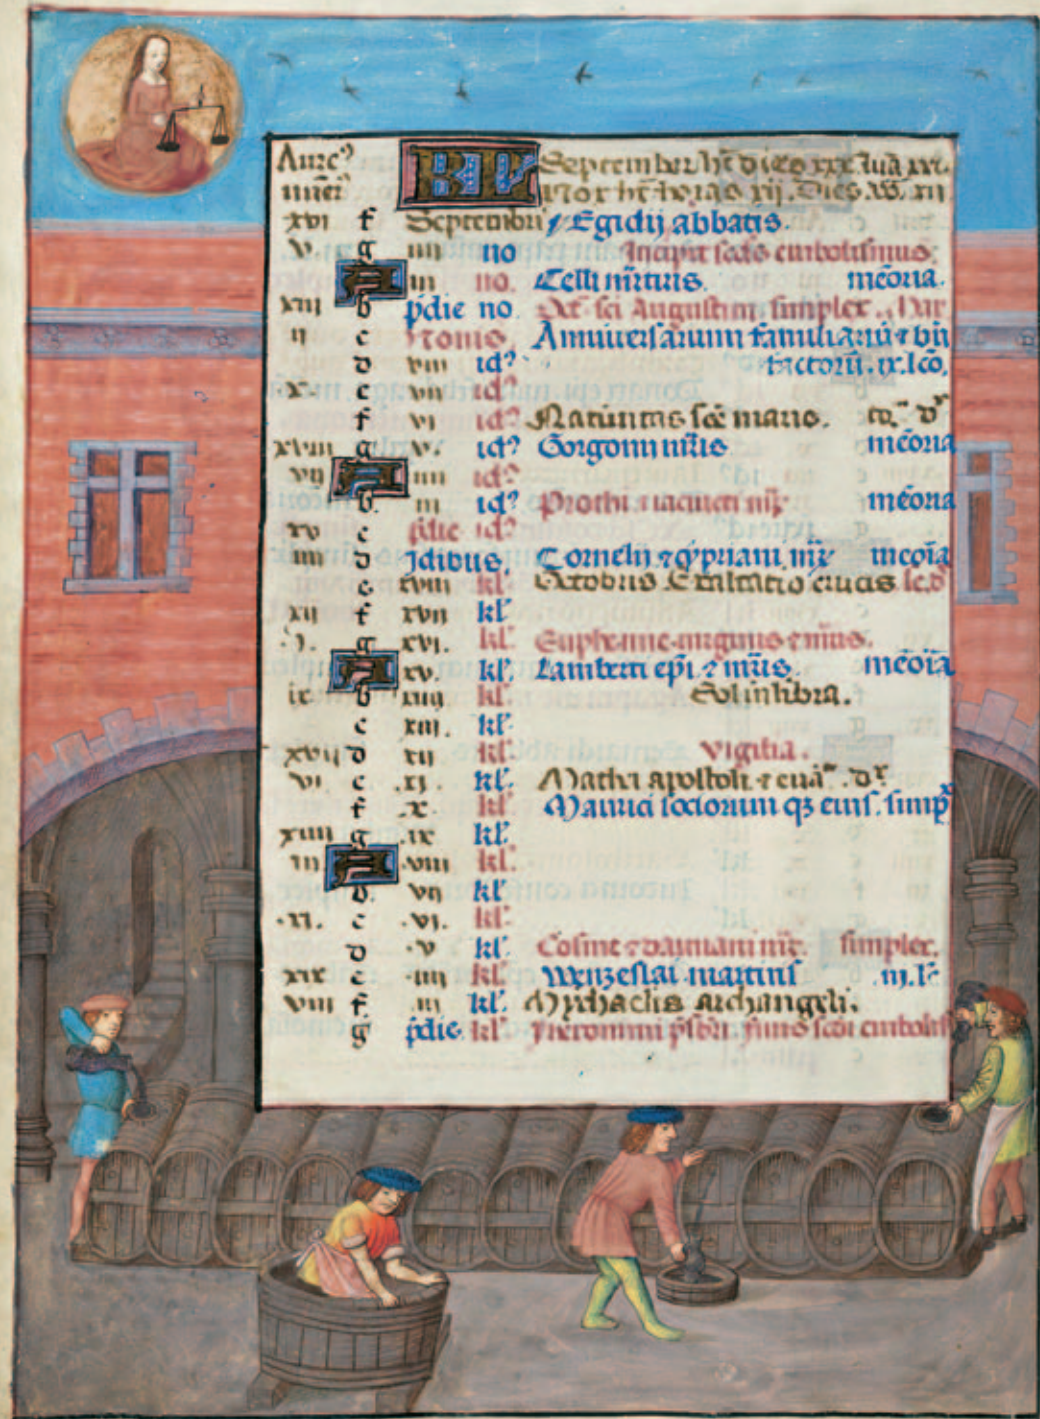 Aure⁹ KL September hēt dies xxx luā xxx.
nūer⁹ Nox hēt horas xij. Dies xij
xvi f Septembris Egidij abbatis.
v g iiii no Incipit scd̄s embolismus.
A iii no. Celli m̄rtiris. mēoria.
xiii b p̄die no Oct̄ sci Augustini simplex.
ii c Nonis Anniversarium familiariū et bn̄
d viii id⁹ factorū. ix. lcō.
x e vii id⁹
f vi id⁹ Nativitas scē marie.
xviii g v. id⁹ Gorgonii m̄ris mēoria
vii A iiii id⁹
b. iii id⁹ Prothi mēoria
xv c p̄die id⁹
iiii d Idibus. Cornelii et cypriani mēoria
e. xviii kl̄. Octobris Exaltatio crucis
xii f xvii kl̄
i. g xvi. kl̄. Euphemie virginis et m̄ris.
A xv. kl̄. Lamberti ep̄i et m̄ris. mēoria
ix b xiiii kl̄. Sol in libra.
c xiii. kl̄
xvii d xii kl̄ Vigilia.
vi e .xi. kl̄. Mathei apostoli et euā⁠
f .x. kl̄. Maurici sociorum qȝ eius. simp̄
xiiii g .ix kl̄.
iii A .viii kl̄.
b. vii kl̄
.xi. c .vi. kl̄.
d .v kl̄. Cosme et damiani simplex.
xix e .iiii kl̄. Wenzeslai martiris .iij. l̄c
viii f .iii kl̄. Mychaelis archangeli.
g p̄die kl̄ Hieronimi